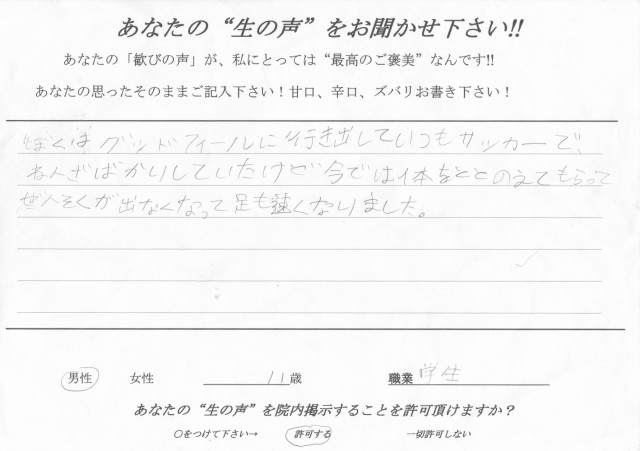 あなたの“生の声”をお聞かせ下さい!!
あなたの「歓びの声」が、私にとっては“最高のご褒美”なんです!!
あなたの思ったそのままご記入下さい！甘口、辛口、ズバリお書き下さい！
ぼくはグッドフィールに行き出していつもサッカーで、
ねんざばかりしていたけど今では体をととのえてもらって
ぜんそくが出なくなって足も速くなりました。
男性 女性 11歳 職業 学生
あなたの“生の声”を院内掲示することを許可頂けますか？
○をつけて下さい→ 許可する 一切許可しない